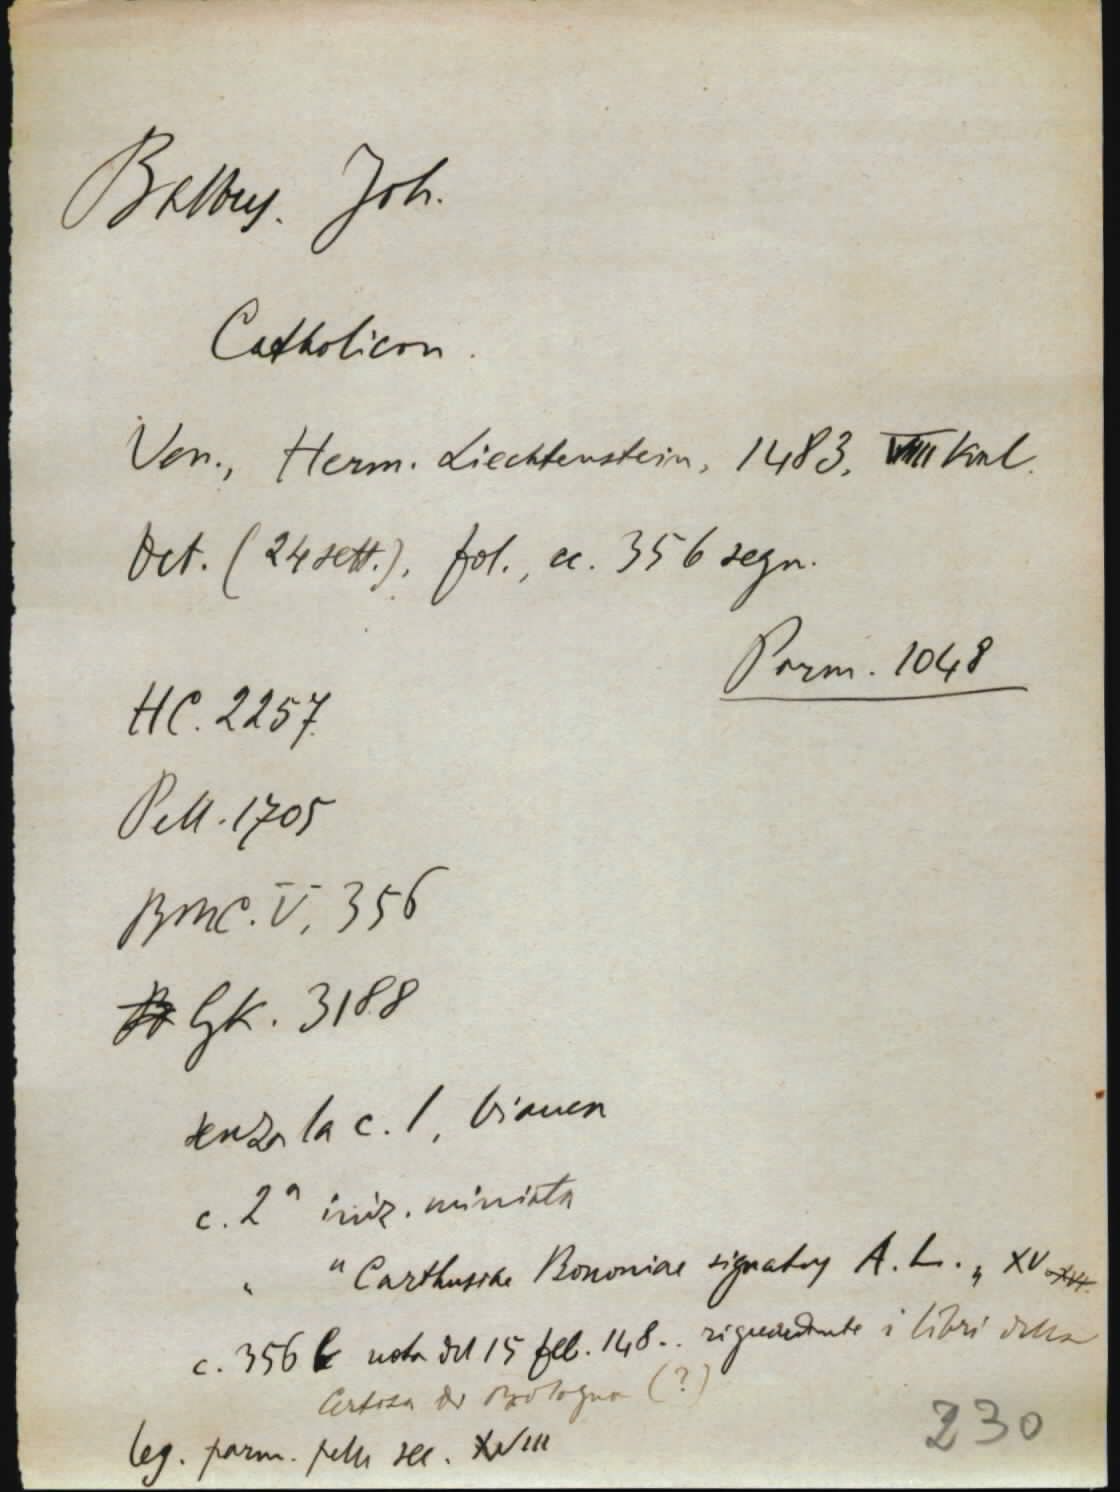 Balbus. Joh.
Catholicon.
Ven., Herm. Liechtenstein, 1483, VIIII Kal.
Oct. (24 sett.), fol., cc. 356 segn.
Parm. 1048
HC. 2257
Pell. 1705
BMC. V, 356
GK. 3188
senza la c. 1, bianca
c. 2a iniz. miniata
" "Carthusiae Bononiae signatus A. L. " XV
c. 356 b nota del 15 feb. 148.. riguardante i libri della
Certosa di Bologna (?)
leg. parm. pelle sec. XVIII
230